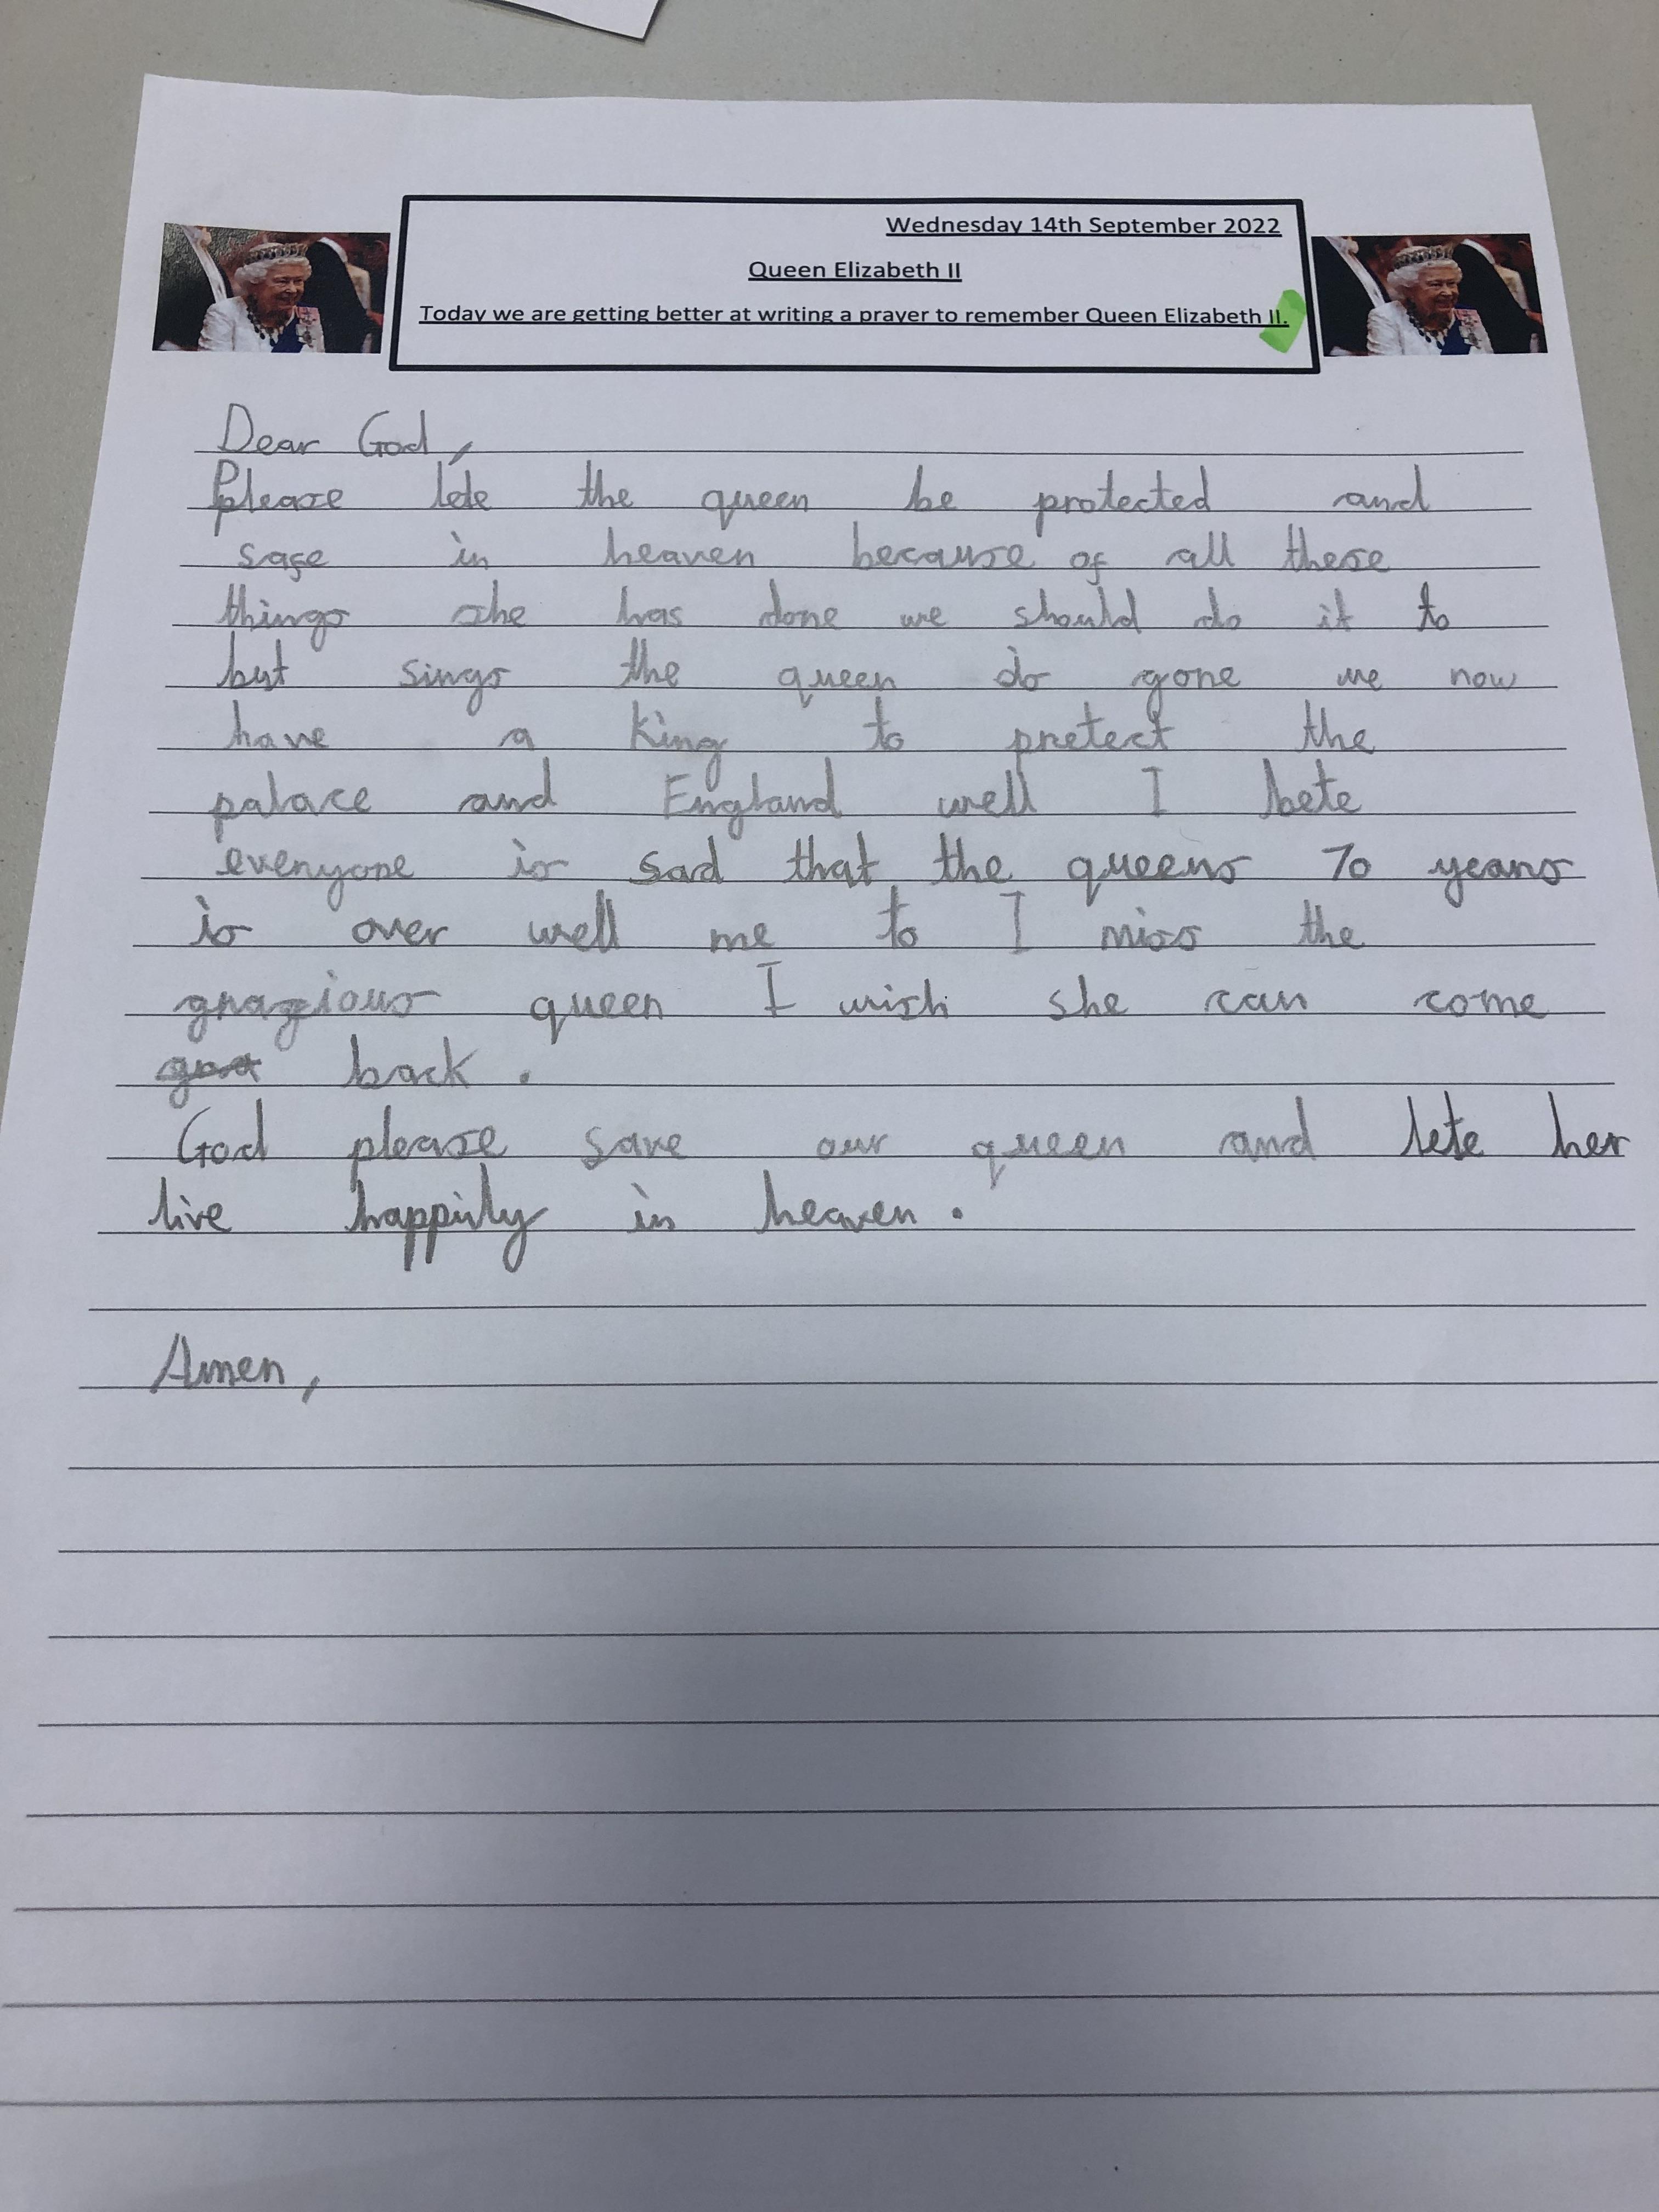 Wednesday 14th September 2022
Queen Elizabeth II
Today we are getting better at writing a prayer to remember Queen Elizabeth II.
Dear God,
Please lete the queen be protected and
safe in heaven because of all these
things she has done we should do it to
but sings the queen is gone we now
have a King to pretect the
palace and England well I bete
everyone is sad that the queens 70 years
is over well me to I miss the
grazious queen I wish she can come
back.
God please save our queen and lete her
live happily in heaven.
Amen,